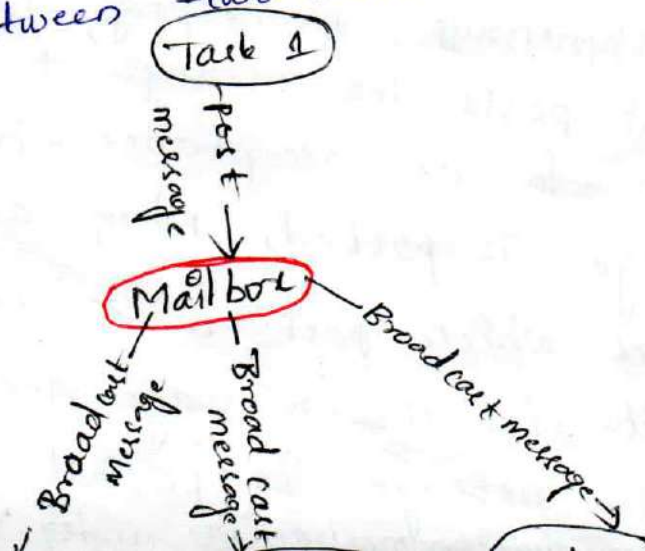 tween two
Task 1
post
message
Mailbox
Broadcast
message
Broad cast
message
Broadcast message